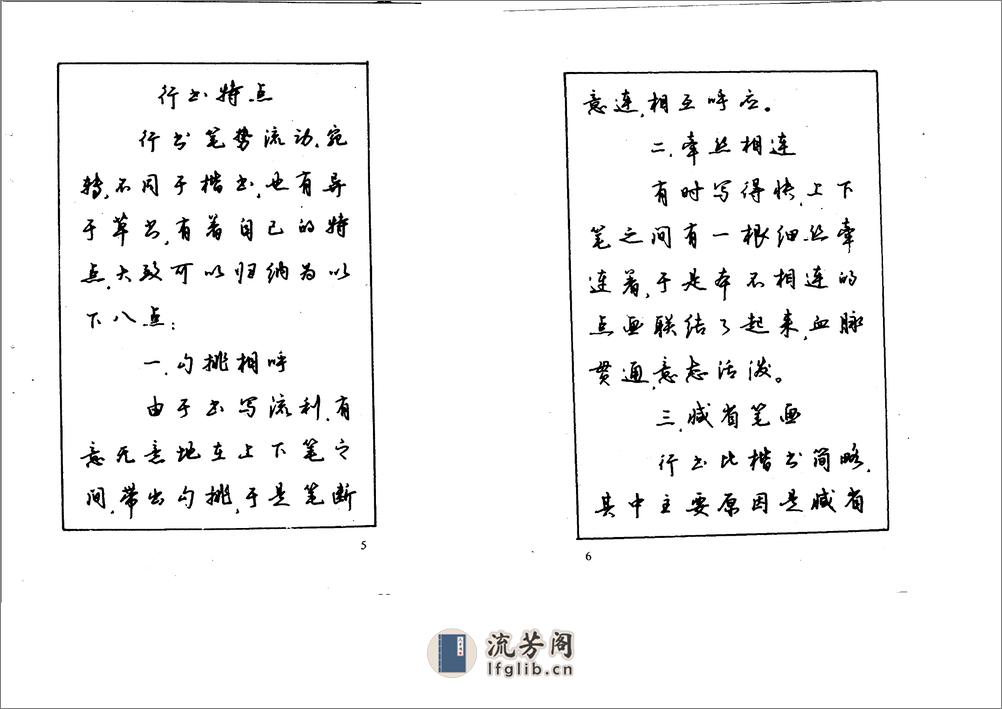 行书特点
行书笔势流动,宛
转,不同于楷书,也有异
于草书,有着自己的特
点,大致可以归纳为以
下八点:
一.勾挑相呼
由于书写流利,有
意无意地在上下笔之
间,带出勾挑,于是笔断
5
意连,相互呼应。
二.牵丝相连
有时写得快,上下
笔之间有一根细丝牵
连着,于是本不相连的
点画联结了起来,血脉
贯通,意态活泼。
三.减省笔画
行书比楷书简略,
其中主要原因是减省
6
流芳阁
lfglib.cn